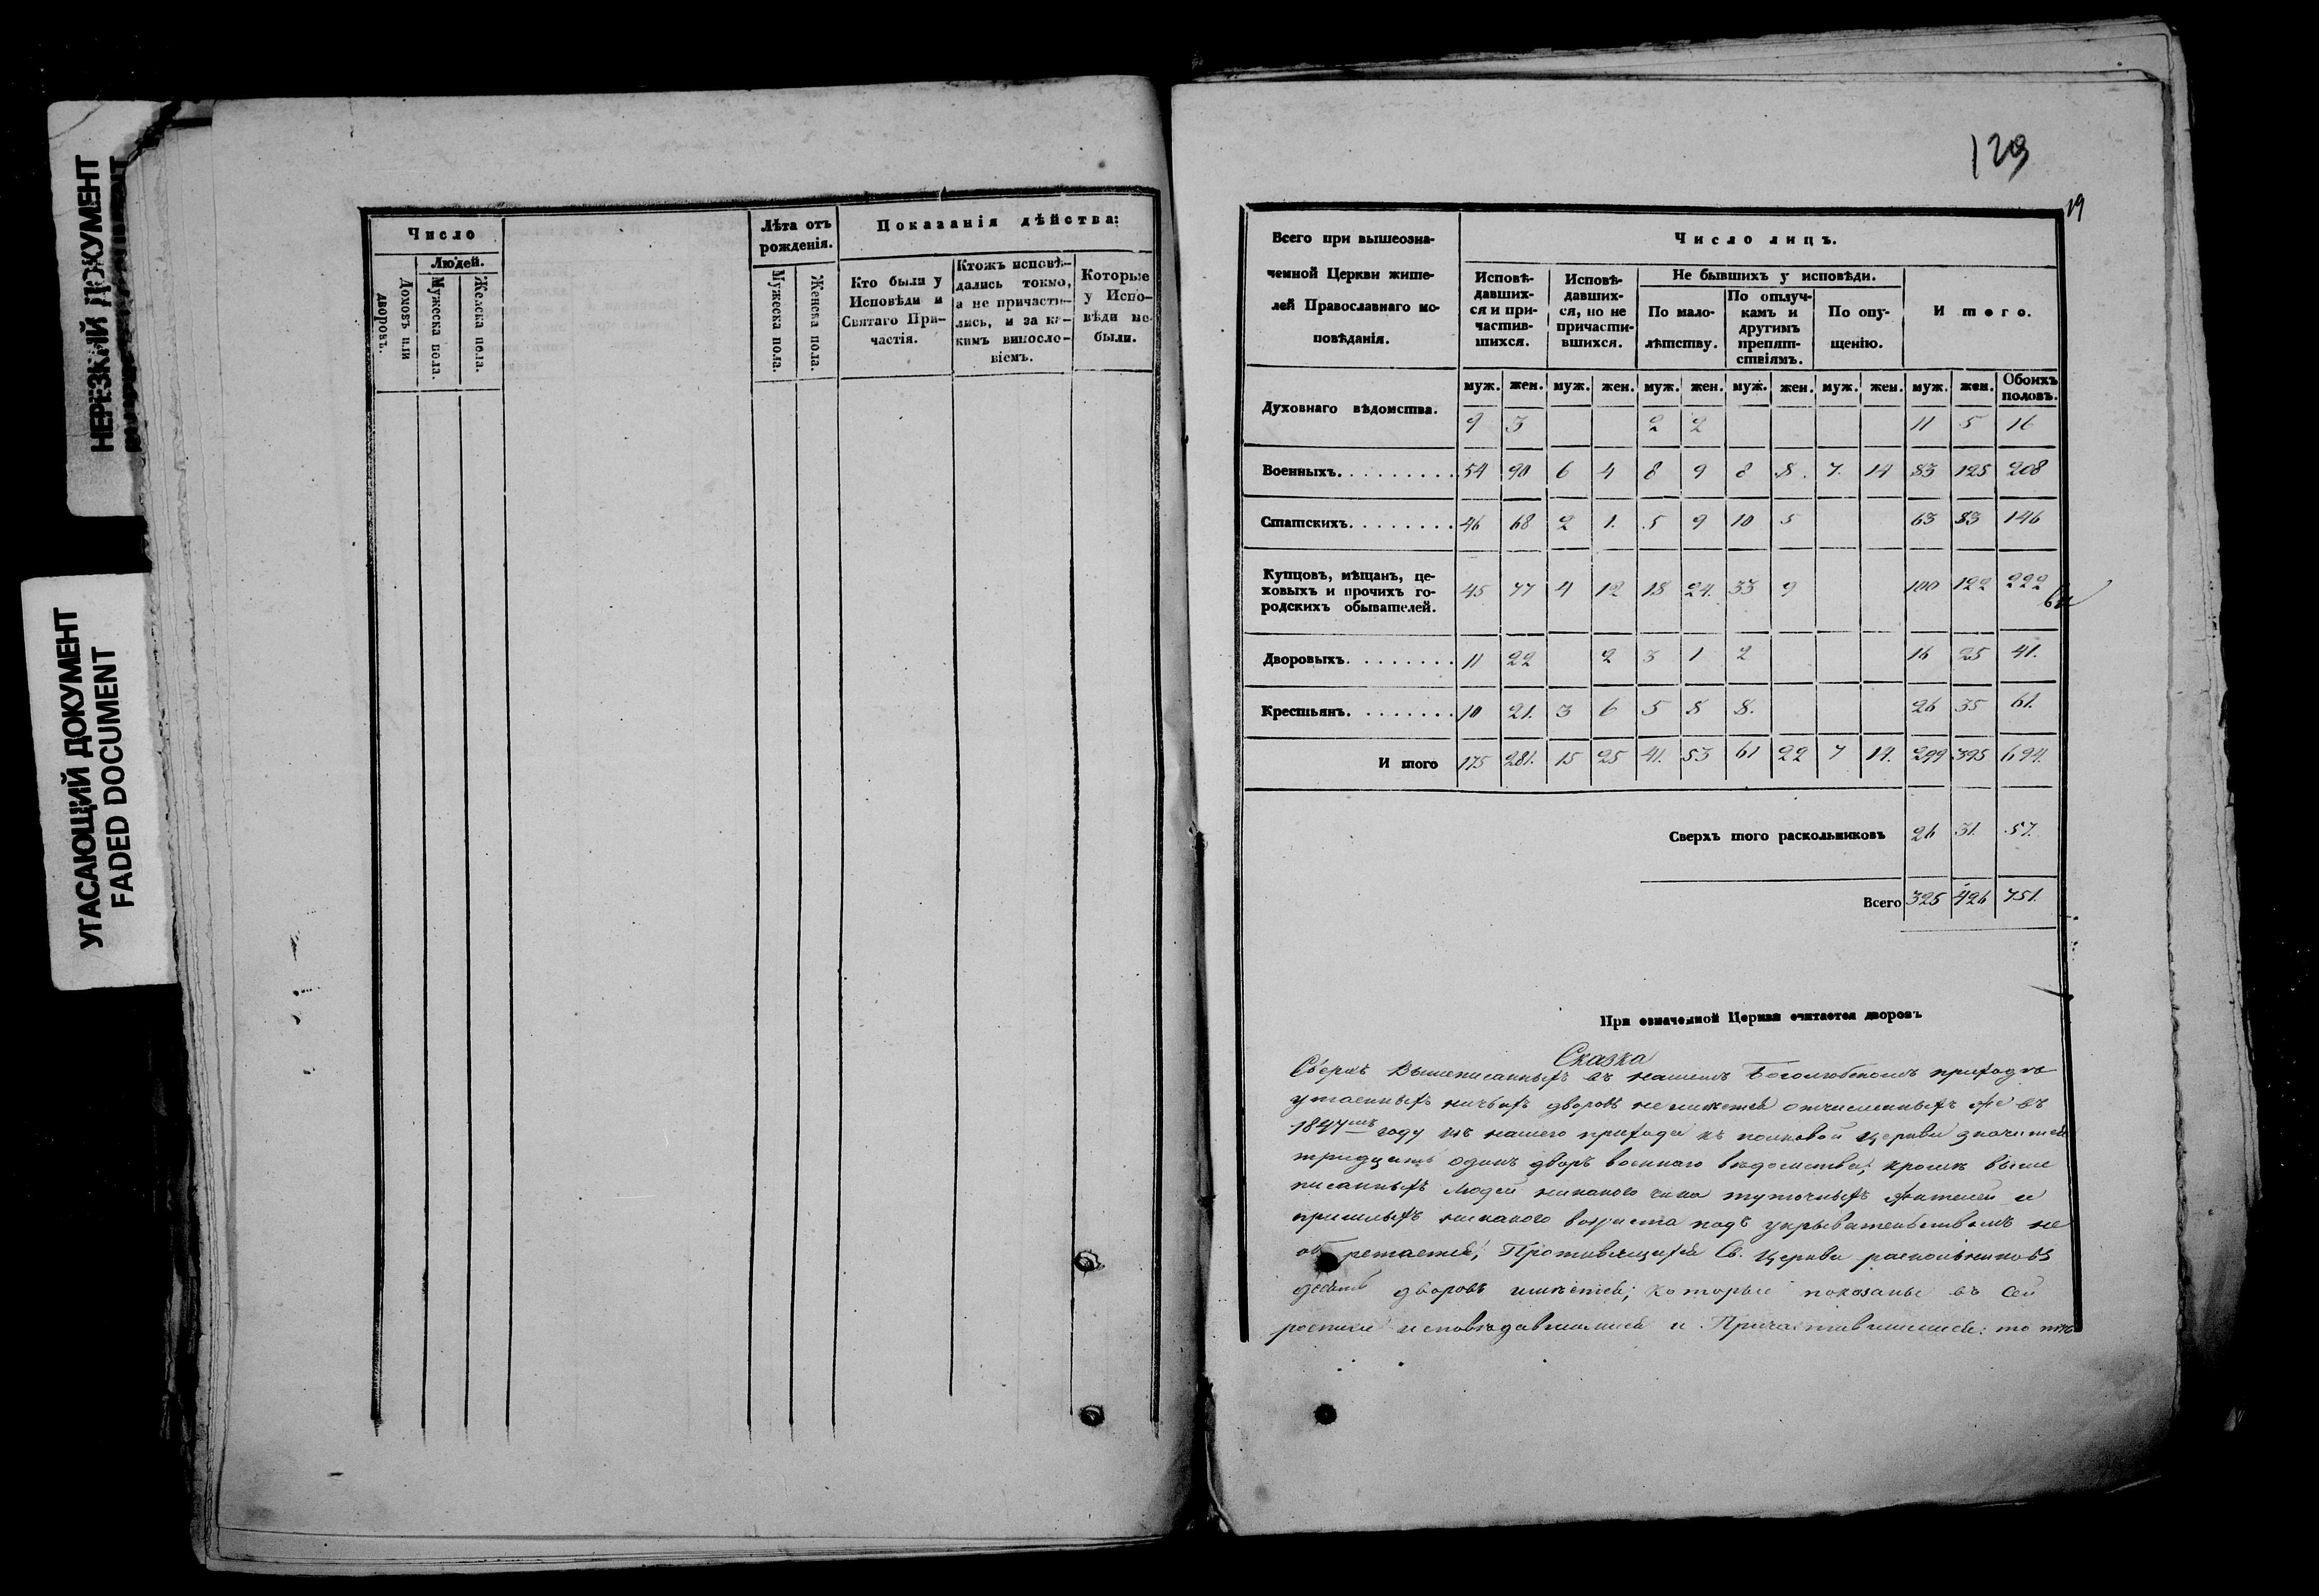 НЕРЕЗКИЙ ДОКУМЕНТ
УГАСАЮЩИЙ ДОКУМЕНТ
FADED DOCUMENT
Число
Людей.
Домовъ или дворовъ.
Мужеска пола.
Женска пола.
Лѣта отъ рожденія.
Мужеска пола.
Женска пола.
Показанія дѣйства:
Кто были у Исповѣди и Святаго Причастія.
Ктожъ исповѣдались токмо, а не причастились, и за какимъ винословіемъ.
Которые у Исповѣди не были.
129
19
Всего при вышеозна-
ченной Церкви жите-
лей Православнаго ис-
повѣданія.
Число лицъ.
Исповѣ-
давших-
ся и при-
частив-
шихся.
Исповѣ-
давших-
ся, но не
причасти-
вшихся.
Не бывшихъ у исповѣди.
По мало-
лѣтству.
По отлуч-
камъ и
другимъ
препят-
ствіямъ.
По опу-
щенію.
И того.
муж. жен. муж. жен. муж. жен. муж. жен. муж. жен. муж. жен. Обоихъ половъ.
Духовнаго вѣдомства. 9 3 2 2 11 5 16
Военныхъ. 54 90 6 4 8 9 8 8. 7. 14 83 125 208
Статскихъ. 46 68 2 1. 5 9 10 5 63 83 146
Купцовъ, мѣщанъ, це-
ховыхъ и прочихъ го-
родскихъ обывателей. 45 77 4 12 18 24. 33 9 100 122 222
Дворовыхъ. 11 22 2 3 1 2 16 25 41.
Крестьянъ. 10 21. 3 6 5 8 8. 26 35 61.
И того 175 281. 15 25 41. 53 61 22 7 14. 299 395 694.
Сверхъ того раскольниковъ 26 31. 57.
Всего 325 426 751.
При означенной Церкви считается дворовъ
Сказка
Сверхъ вышеписанныхъ въ нашемъ Боголюбскомъ приходѣ
утаенныхъ ничьихъ дворовъ не имѣется отчисленныхъ же въ
1847мъ году изъ нашего прихода къ полковой церкви значится
тридцать одинъ дворъ военнаго вѣдомства; кромѣ выше
писанныхъ людей никакого чина туточныхъ жителей и
пришлыхъ никакого возраста подъ укрывательствомъ не
обретается; Противящихся Св. Церкви раскольниковъ
дворовъ имѣется; которые показаны въ сей
росписи исповѣдавшимися и Причастившимися: то тѣ